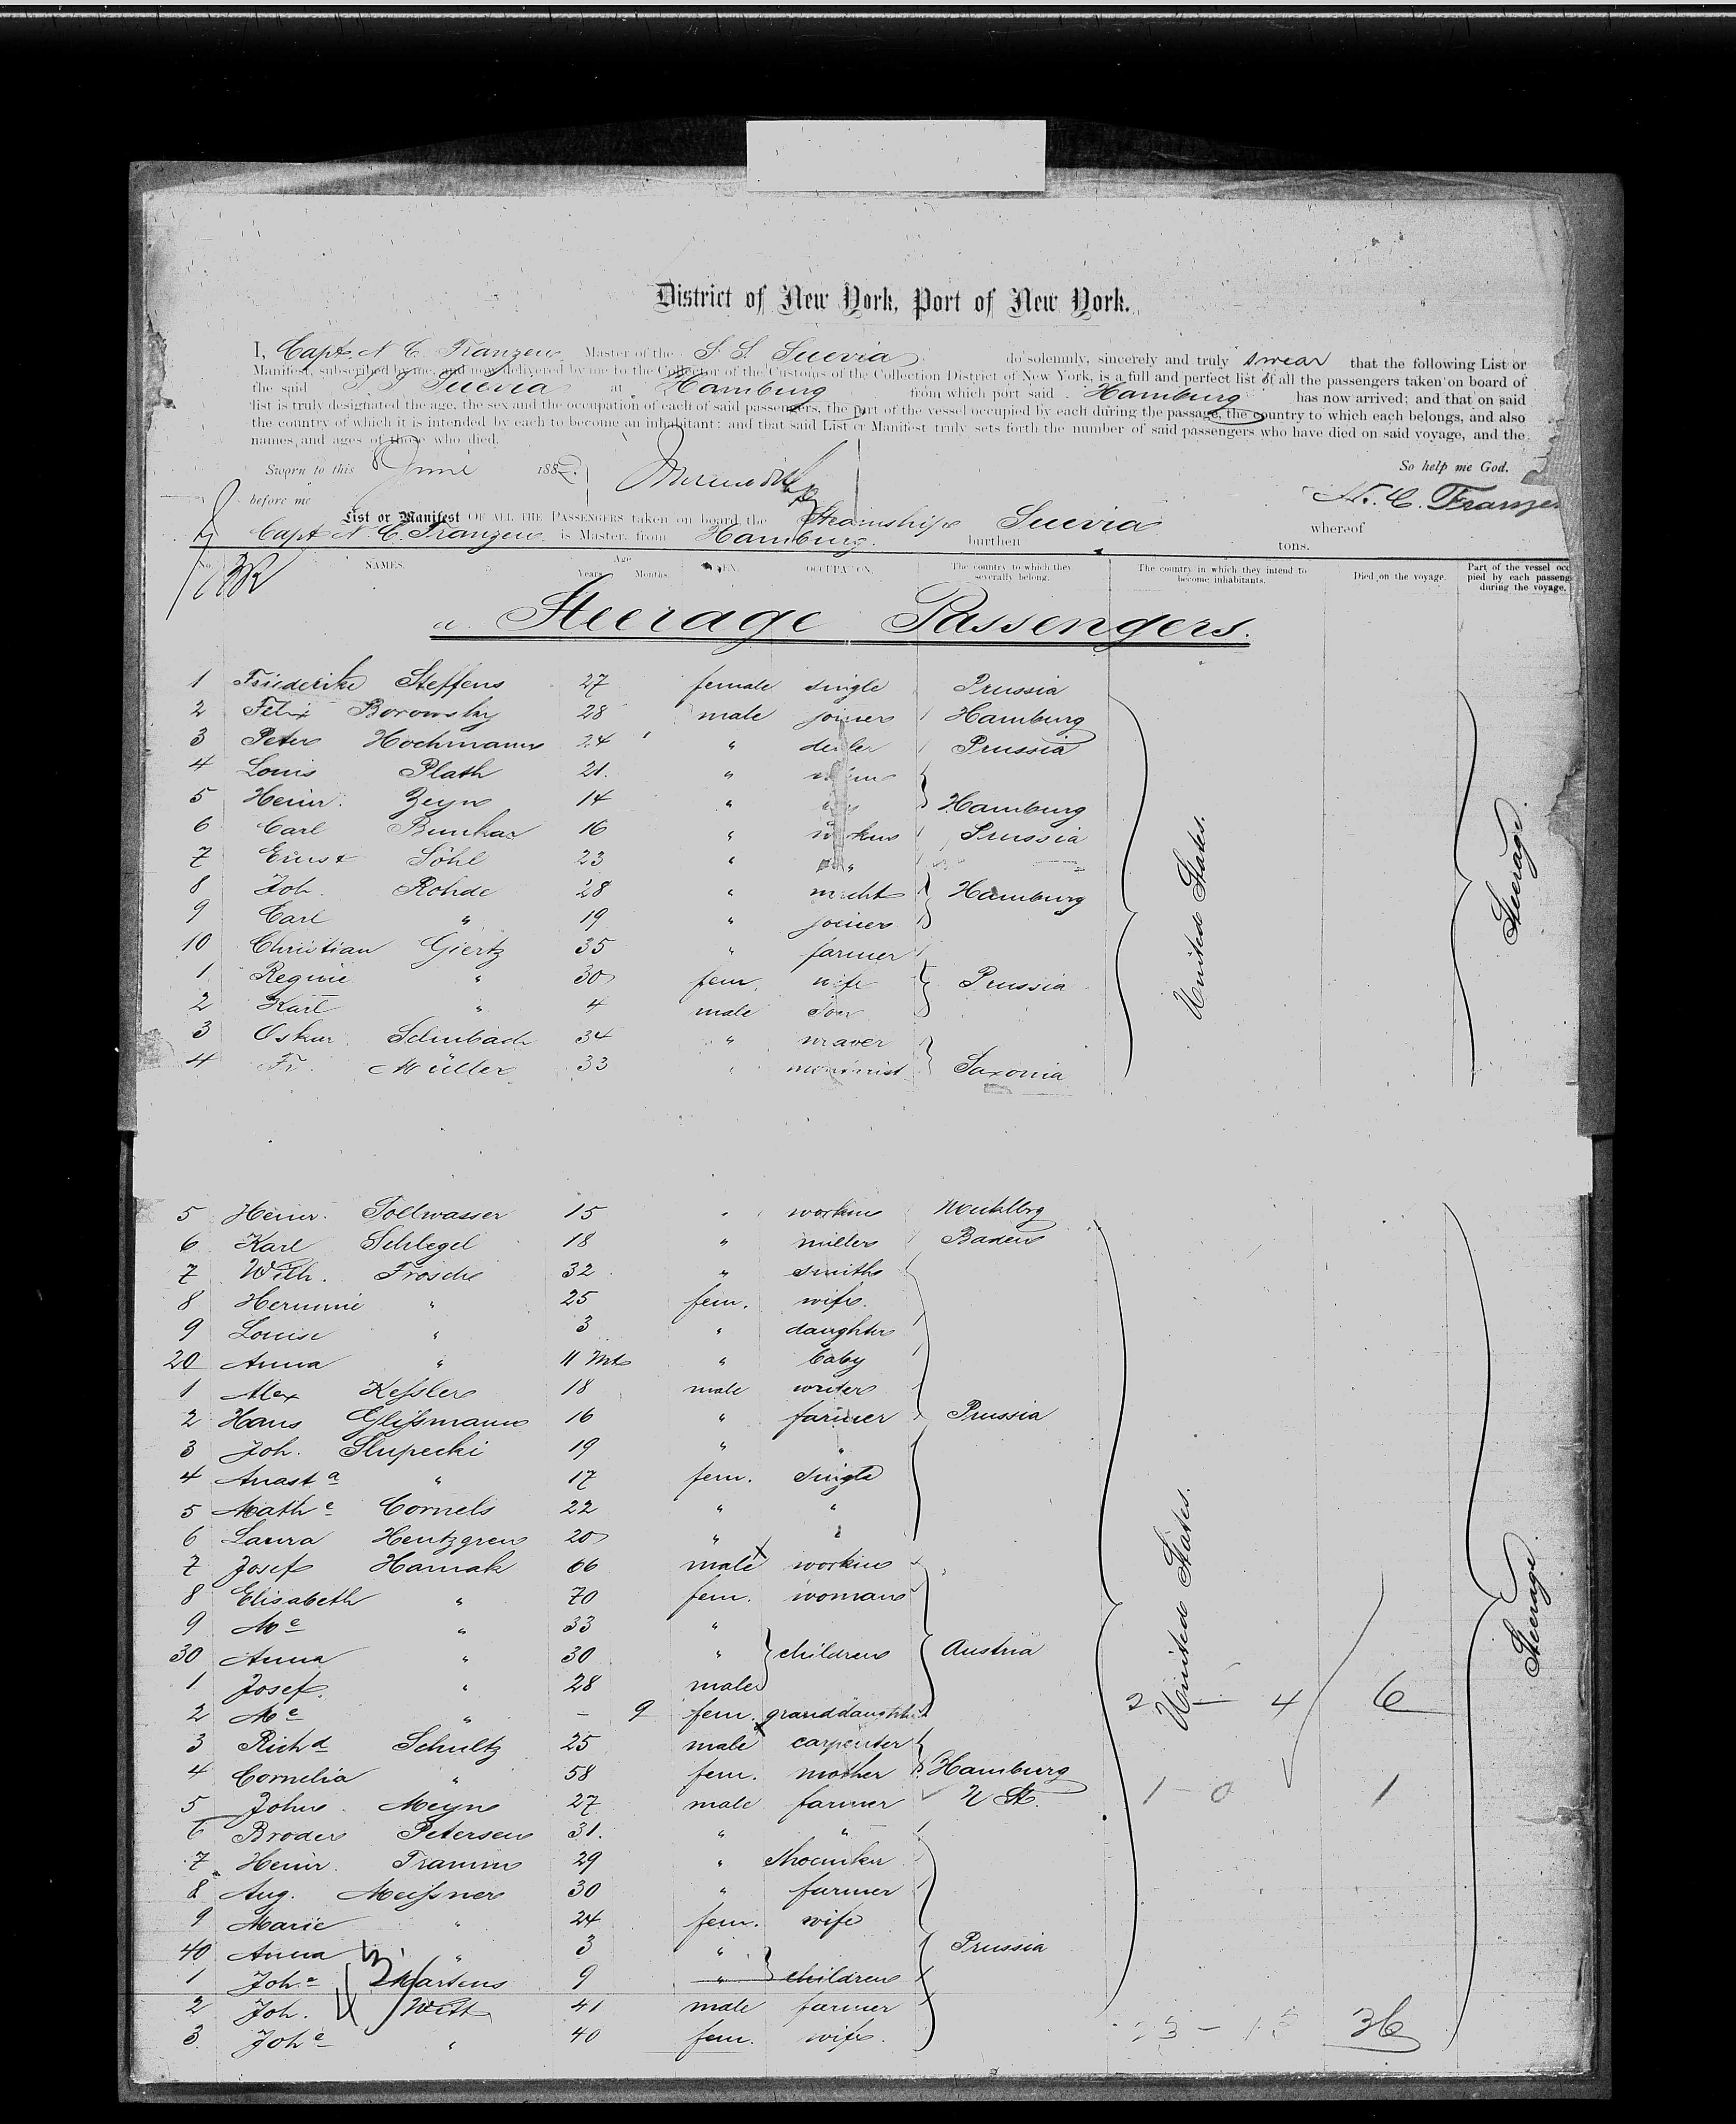 District of New York, Port of New York.
I, Capt. N. C. Franzen Master of the S. S. Suevia do solemnly, sincerely and truly swear that the following List or
Manifest, subscribed by me, and now delivered by me to the Collector of the Customs of the Collection District of New York, is a full and perfect list of all the passengers taken on board of
the said S S Suevia at Hamburg from which port said Hamburg has now arrived; and that on said
list is truly designated the age, the sex and the occupation of each of said passengers, the part of the vessel occupied by each during the passage, the country to which each belongs, and also
the country of which it is intended by each to become an inhabitant: and that said List or Manifest truly sets forth the number of said passengers who have died on said voyage, and the
names and ages of those who died.
Sworn to this 8 June 1882. So help me God.
before me N. C. Franzen
List or Manifest OF ALL THE PASSENGERS taken on board the Steamship Suevia whereof
Capt N. C. Franzen is Master, from Hamburg. burthen tons.
No. NAMES. Age Years. Months. SEX. OCCUPATION. The country to which they severally belong. The country in which they intend to become inhabitants. Died on the voyage. Part of the vessel occupied by each passenger during the voyage.
a. Steerage Passengers.
1 Friederike Steffens 27 female single Prussia
2 Felix Borowsky 28 male joiner Hamburg
3 Peter Hochmann 24 " Prussia
4 Louis Plath 21. "
5 Heinr. Zeyn 14 " Hamburg
6 Carl Bunkar 16 " Prussia
7 Ernst Söhl 23 " "
8 Joh. Rohde 28 " Hamburg
9 Carl " 19 " joiner
10 Christian Giertz 35 " farmer
1 Regine " 30 fem. wife Prussia
2 Karl " 4 male son
3 Oskar Schubach 34 " weaver
4 Fr. Müller 33 " Saxonia
United States.
Steerage.
5 Heinr. Tollwasser 15 " workm Mecklbrg
6 Karl Schlegel 18 " miller Baden
7 Wilh. Frosch 32 " smith
8 Hermine " 25 fem. wife.
9 Louise " 3 " daughter
20 Anna " 11 Mts " baby
1 Alex Keßler 18 male writer
2 Hans Glißmann 16 " farmer Prussia
3 Joh. Slupecki 19 " "
4 Anasta " 17 fem. single
5 Mathe Cornels 22 " "
6 Laura Hentzgren 20 " "
7 Josef Hamak 66 male workm
8 Elisabeth " 70 fem. woman
9 Me " 33 "
30 Anna " 30 " children Austria
1 Josef. " 28 male
2 Me " – 9 fem. granddaughter 2 – 4 6
3 Richd Schultz 25 male carpenter
4 Cornelia " 58 fem. mother Hamburg
5 Johs. Meyn 27 male farmer U St. 1 – 0 1
6 Broder Petersen 31. " "
7 Heinr. Tramm 29 " shoemker
8 Aug. Meißner 30 " farmer
9 Marie " 24 fem. wife
40 Anna " 3 " Prussia
1 Johe Martens 9 " children
2 Joh. Witt 41 male farmer
3. Johe " 40 fem. wife. 36
United States.
Steerage.